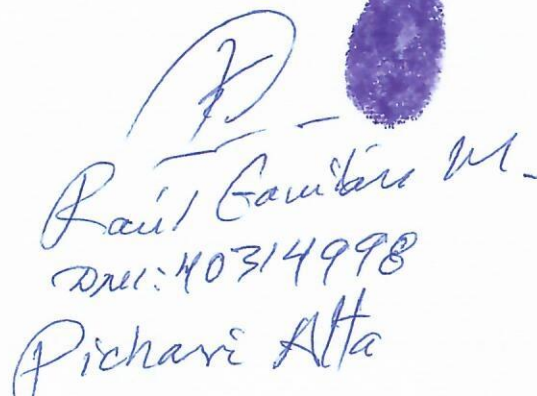 Raúl Gavilán M.
DNI: 40314998
Pichari Alta